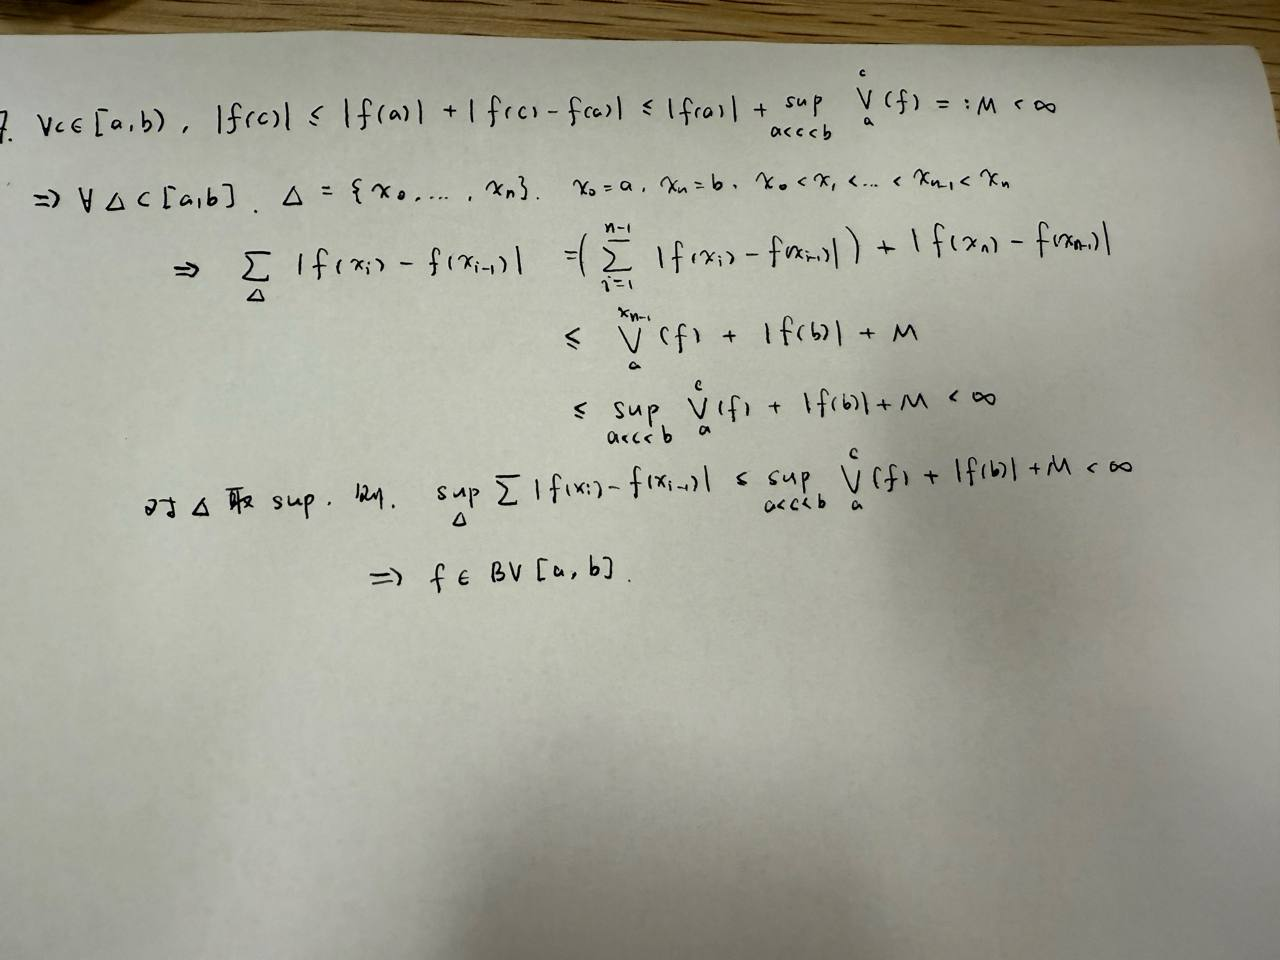 7. ∀c∈[a,b), |f(c)| ≤ |f(a)| + |f(c) - f(a)| ≤ |f(a)| + sup_{a<c<b} V_a^c (f) =: M < ∞
⇒ ∀ Δ ⊂ [a,b]. Δ = {x_0, ..., x_n}. x_0 = a, x_n = b. x_0 < x_1 < ... < x_{n-1} < x_n
⇒ Σ_Δ |f(x_i) - f(x_{i-1})| = (Σ_{i=1}^{n-1} |f(x_i) - f(x_{i-1})|) + |f(x_n) - f(x_{n-1})|
≤ V_a^{x_{n-1}} (f) + |f(b)| + M
≤ sup_{a<c<b} V_a^c (f) + |f(b)| + M < ∞
对 Δ 取 sup. 则. sup_Δ Σ |f(x_i) - f(x_{i-1})| ≤ sup_{a<c<b} V_a^c (f) + |f(b)| + M < ∞
⇒ f ∈ BV [a, b].